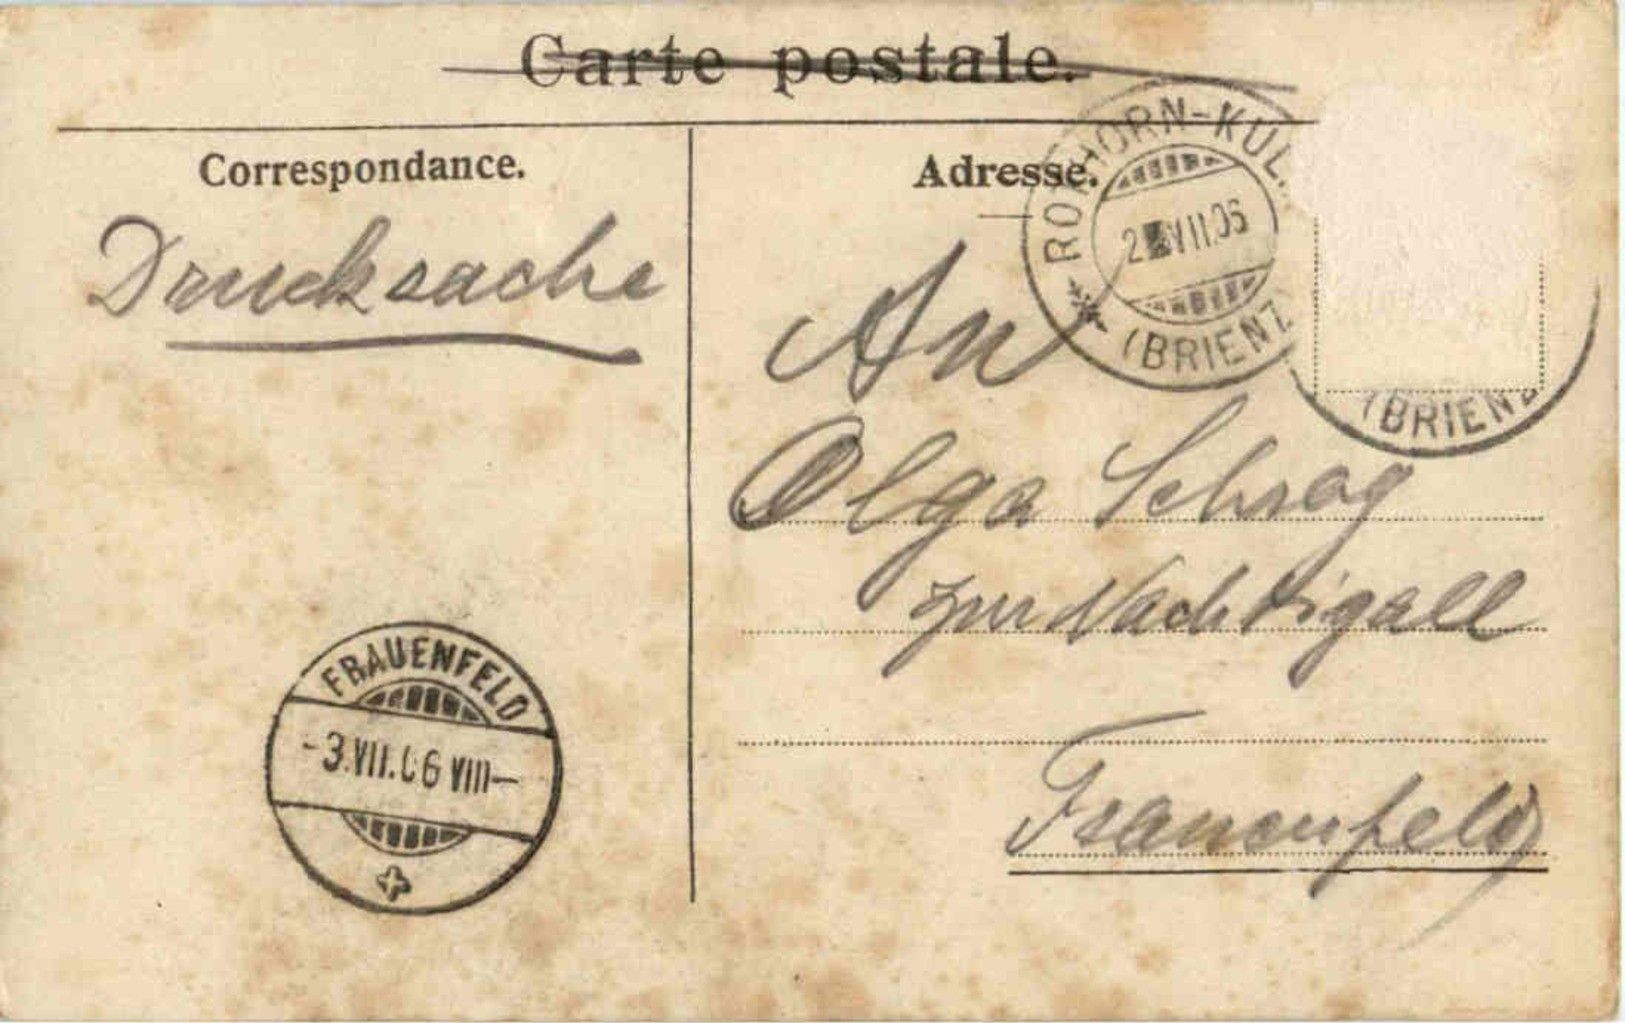 Carte postale.
Correspondance.
Adresse.
ROTHORN-KUL
2 VII.06
(BRIENZ)
(BRIENZ
Drucksache
An
Olga Schrag
zur Nachtigall
Frauenfeld
FRAUENFELD
-3.VII.06 VIII-